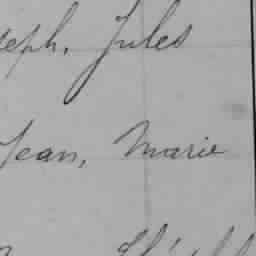 seph, Jules
Jean, Marie